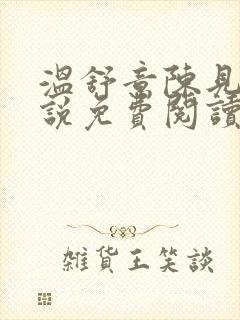 溫舒章陳見
說免費閱讀
雜貨王笑談